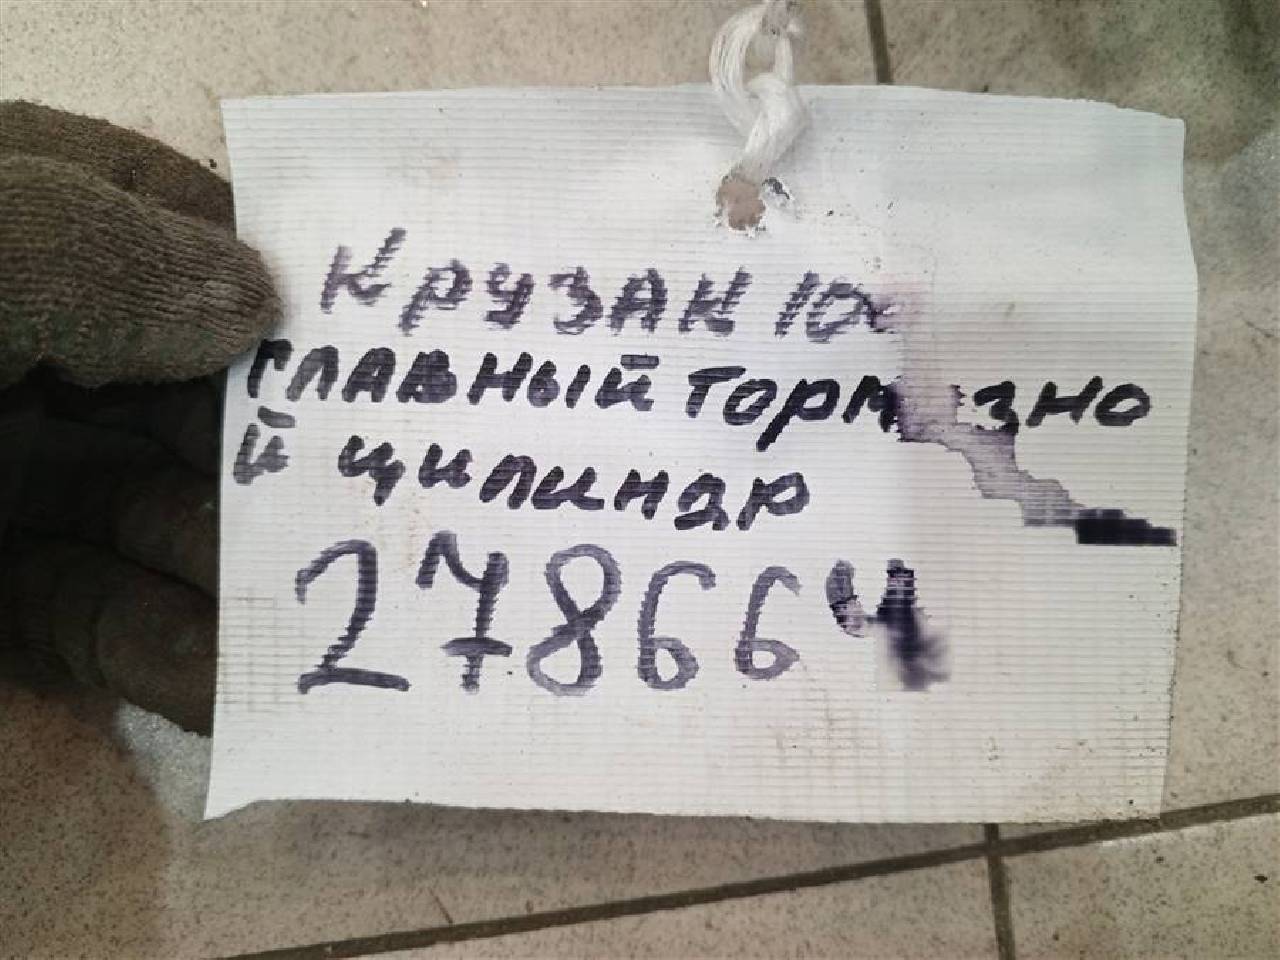 Крузак 100
главный тормозно
й цилиндр
278664